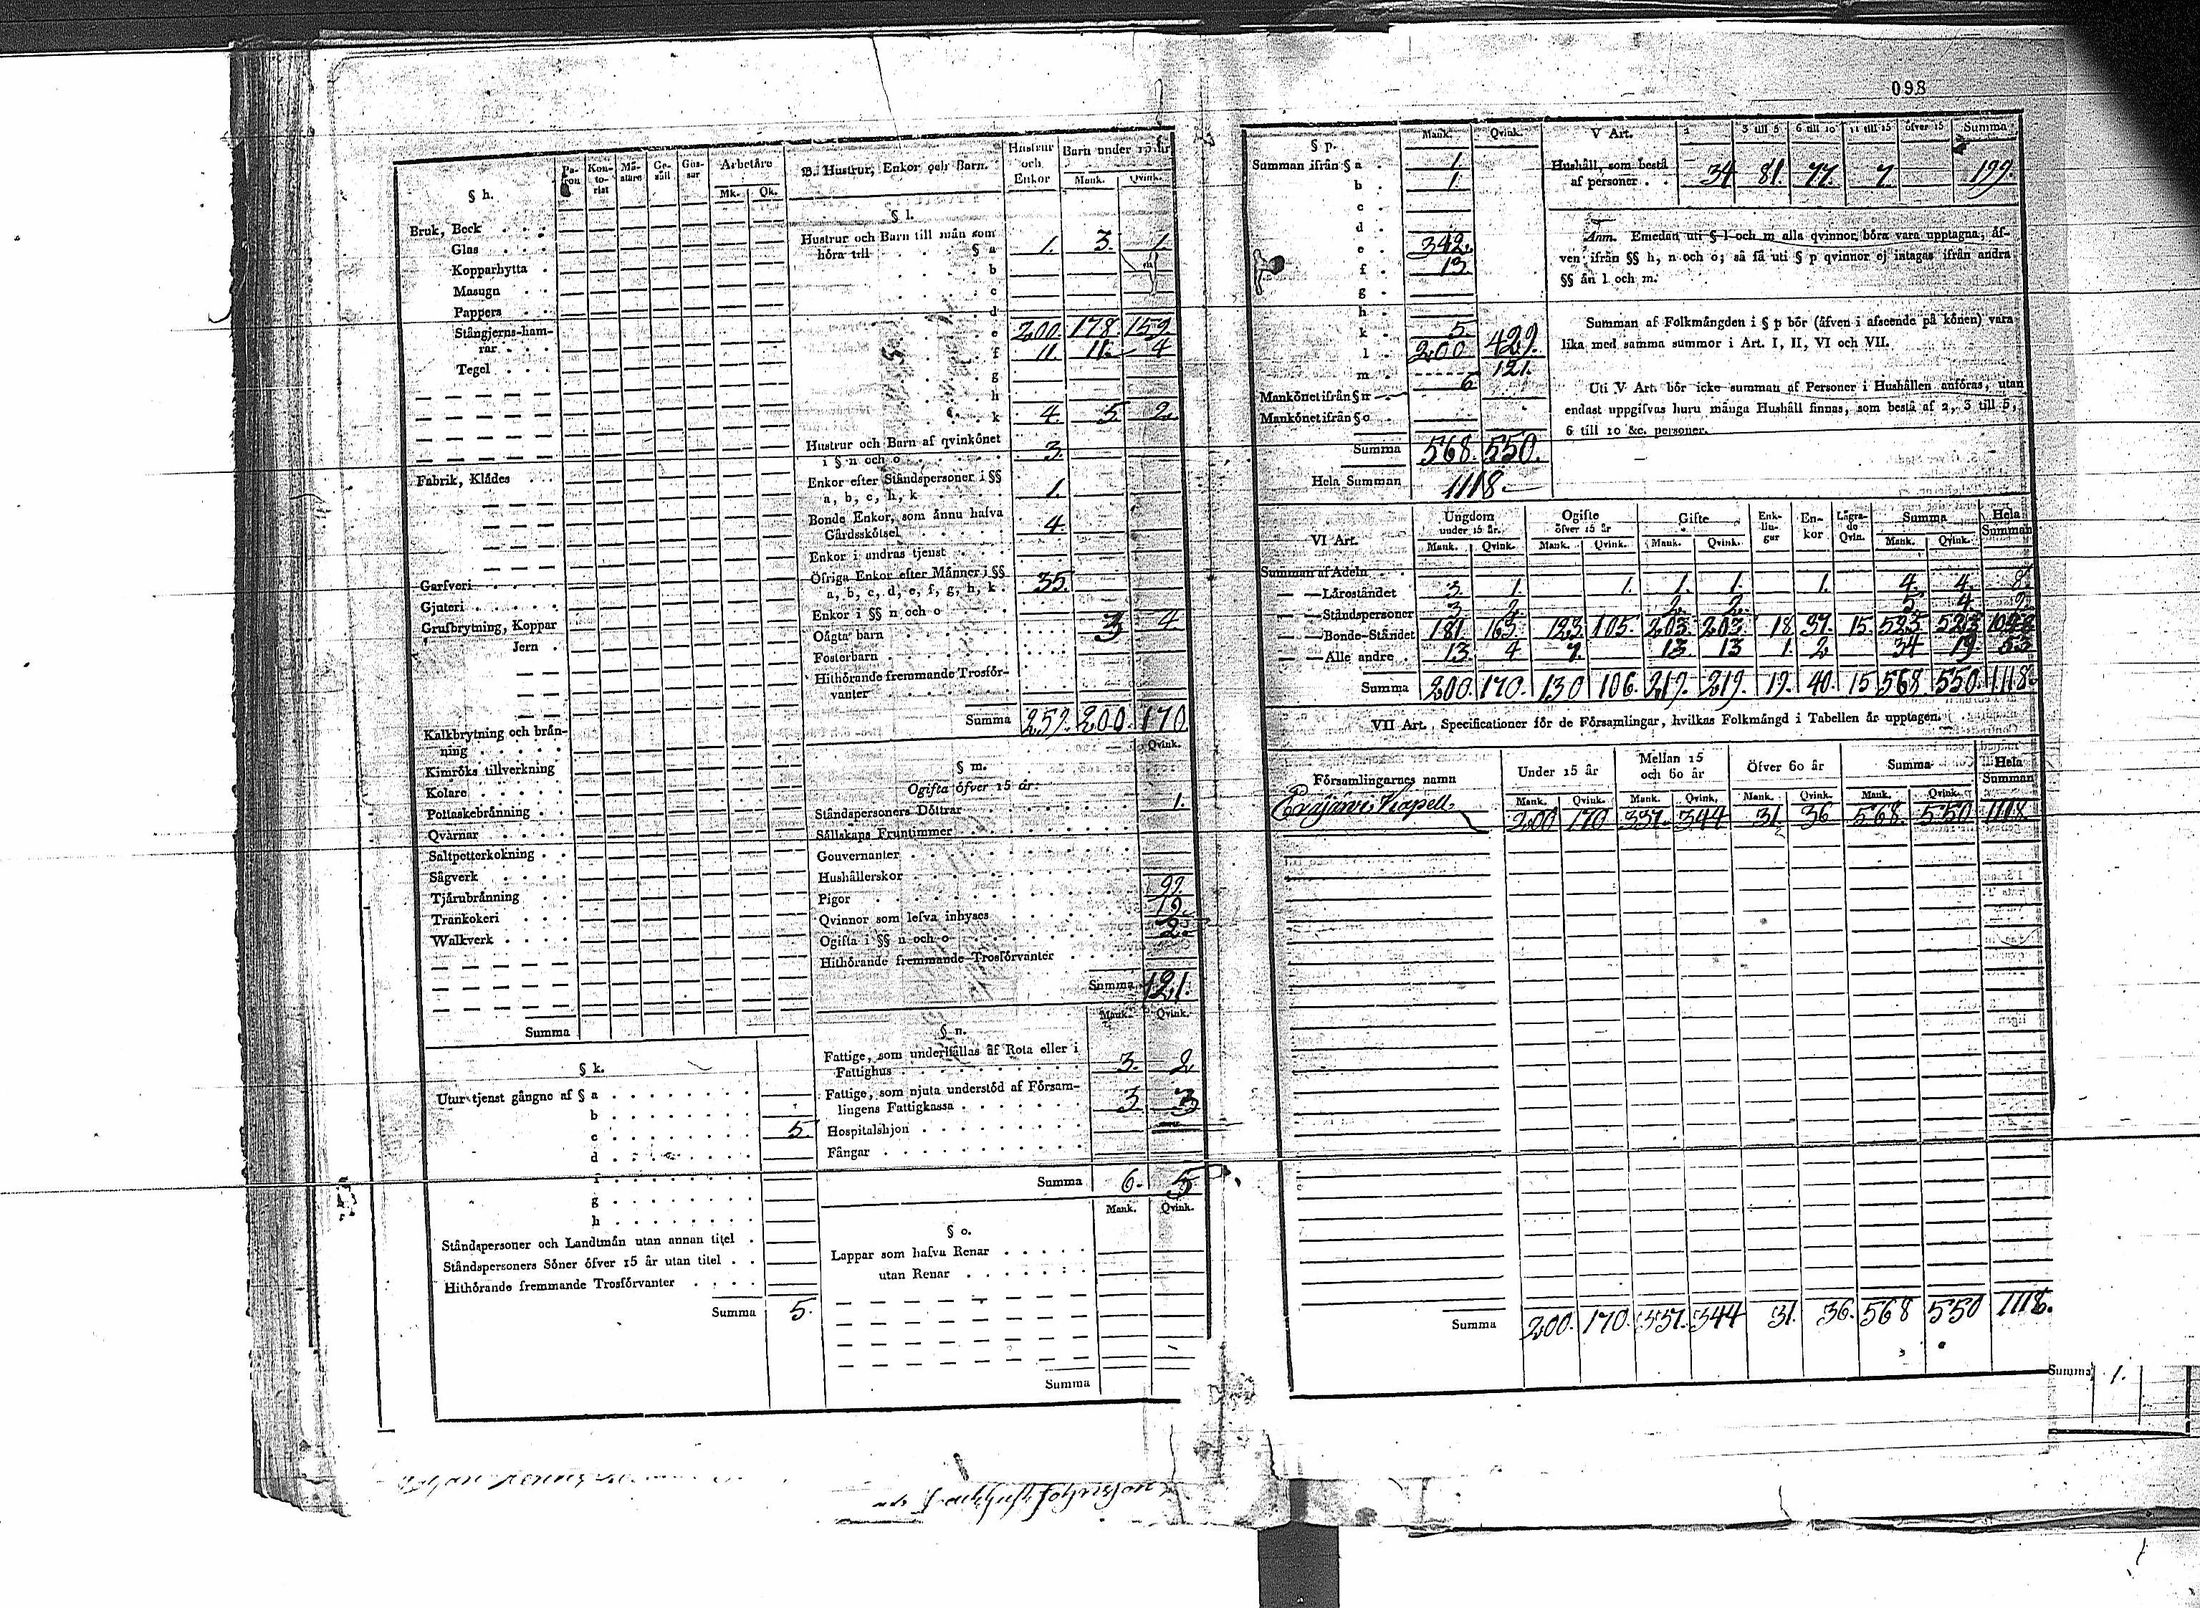 098
§ h.
Pa-
tron
Kon-
to-
rist
Mä-
stare
Ge-
säll
Gos-
sar
Arbetare
Mk. Qk.
Bruk, Beck
Glas
Kopparhytta
Masugn
Pappers
Stångjerns-ham-
rar
Tegel
Fabrik, Klädes
Garfveri
Gjuteri
Grufbrytning, Koppar
Jern
Kalkbrytning och brän-
ning
Kimröks tillverkning
Kolare
Pottaskebränning
Qvarnar
Saltpetterkokning
Sågverk
Tjärubränning
Trankokeri
Walkverk
Summa
§ k.
Utur tjenst gångne af § a
b
c 5.
d
f
g
h
Ståndspersoner och Landtmän utan annan titel
Ståndspersoners Söner öfver 15 år utan titel
Hithörande fremmande Trosförvanter
Summa 5.
B. Hustrur, Enkor och Barn.
Hustrur
och
Enkor
Barn under 15 år
Mank. Qvink.
§ l.
Hustrur och Barn till män som
höra till § a 1. 3. 1.
b
c
d
e 200. 178. 159.
f 11. 11. 4
g
h
k 4. 5. 2.
Hustrur och Barn af qvinkönet
i § n och o 3.
Enkor efter Ståndspersoner i §§
a, b, c, h, k 1.
Bonde Enkor, som ännu hafva
Gårdsskötsel 4.
Enkor i andras tjenst
Öfriga Enkor efter Männer i §§
a, b, c, d, e, f, g, h, k 35.
Enkor i §§ n och o
Oägta barn 3 4.
Fosterbarn
Hithörande fremmande Trosför-
vanter
Summa 259. 200. 170
Qvink.
§ m.
Ogifta öfver 15 år:
Ståndspersoners Döttrar 1.
Sällskaps Fruntimmer
Gouvernanter
Hushållerskor
Pigor 99.
Qvinnor som lefva inhyses 19.
Ogifta i §§ n och o 2.
Hithörande fremmande Trosförvanter
Summa 121.
Mank. Qvink.
§ n.
Fattige, som underhållas af Rota eller i
Fattighus 3. 2.
Fattige, som njuta understöd af Försam-
lingens Fattigkassa 3 3
Hospitalshjon
Fångar
Summa 6. 5
Mank. Qvink.
§ o.
Lappar som hafva Renar
utan Renar
Summa
§ p.
Mank. Qvink.
Summan ifrån § a 1.
b 1.
c
d
e 342.
f 13
g
h
k 5.
l 200 429.
m 121.
Mankönet ifrån § n 6
Mankönet ifrån § o
Summa 568. 550.
Hela Summan 1118.
V Art. 2 3 till 5 6 till 10 11 till 15 öfver 15 Summa
Hushåll, som bestå
af personer 34 81. 77. 7 199.
Anm. Emedan uti § l och m alla qvinnor böra vara upptagna, äf-
ven ifrån §§ h, n och o; så få uti § p qvinnor ej intagas ifrån andra
§§ än l och m.
Summan af Folkmängden i § p bör (äfven i afseende på könen) vara
lika med samma summor i Art. I, II, VI och VII.
Uti V Art. bör icke summan af Personer i Hushållen anföras, utan
endast uppgifvas huru många Hushåll finnas, som bestå af 2, 3 till 5,
6 till 10 &c. personer.
VI Art.
Ungdom
under 15 år.
Ogifte
öfver 15 år
Gifte
Enk-
lin-
gar
En-
kor
Lägra-
de
Qvin.
Summa
Hela
Summan
Mank. Qvink. Mank. Qvink. Mank. Qvink. Mank. Qvink.
Summan af Adeln
Läroståndet 3. 1. 1. 1. 1. 1. 4. 4. 8.
Ståndspersoner 3 2. 2. 2. 5 4. 9.
Bonde-Ståndet 181. 163. 123. 105. 203. 203. 18. 37. 15. 525. 523 1048
Alle andre 13. 4 7. 13. 13 1. 2 34 19. 53
Summa 200. 170. 130 106. 219. 219. 19. 40. 15 568 550. 1118.
VII Art. Specificationer för de Församlingar, hvilkas Folkmängd i Tabellen är upptagen.
Församlingarnes namn
Under 15 år
Mellan 15
och 60 år
Öfver 60 år
Summa
Hela
Summan
Mank. Qvink. Mank. Qvink. Mank. Qvink. Mank. Qvink.
Evijärvi Kapell 200 170 337. 344 31. 36 568. 550 1118.
Summa 200. 170. 337. 344 31. 36. 568 550 1118.
Summa 1.